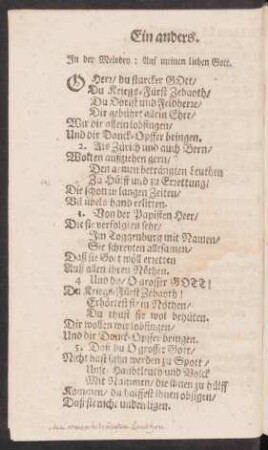 Ein anders.
In der Melodey: Auß meinen lieben Gott.
O Herr/ du starcker GOtt/
Du Kriegs-Fürst Zebaoth/
Du Obrist und Feldherre/
Dir gebührt allein Ehre/
Wir dir allein lobsingen/
Und die Danck-Opffer bringen.
2. Als Zürich und auch Bern/
Wolten außziehen gern/
Den armen beträngten Leuthen
Zu Hülff und zu Errettung/
Die schon in langen Zeiten/
Vil übels hand erlitten.
3. Von der Papisten Heer/
Die sie verfolgten sehr/
Im Toggenburg mit Namen/
Sie schreyten allesamen/
Daß sie Gott wöll erretten
Auß allen ihren Nöthen.
4 Und du/ O grosser GOTT!
Du Kriegs-Fürst Zebaoth!
Erhörest sie in Nöthen/
Du thust sie wol behüten.
Dir wollen wir lobsingen/
Und die Danck-Opffer bringen.
5. Daß du O grosser Gott/
Nicht dast sahn werden zu Spott/
Unser Handtleuth und Volck
Mit Nammen/ die ihnen zu hülff
Kommen/ du halffest ihnen obsigen/
Daß sie nicht unden ligen.